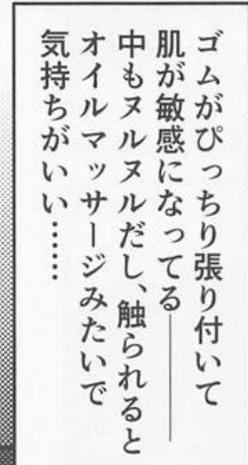 ゴムがぴっちり張り付いて
肌が敏感になってる――
中もヌルヌルだし、触られると
オイルマッサージみたいで
気持ちがいい……